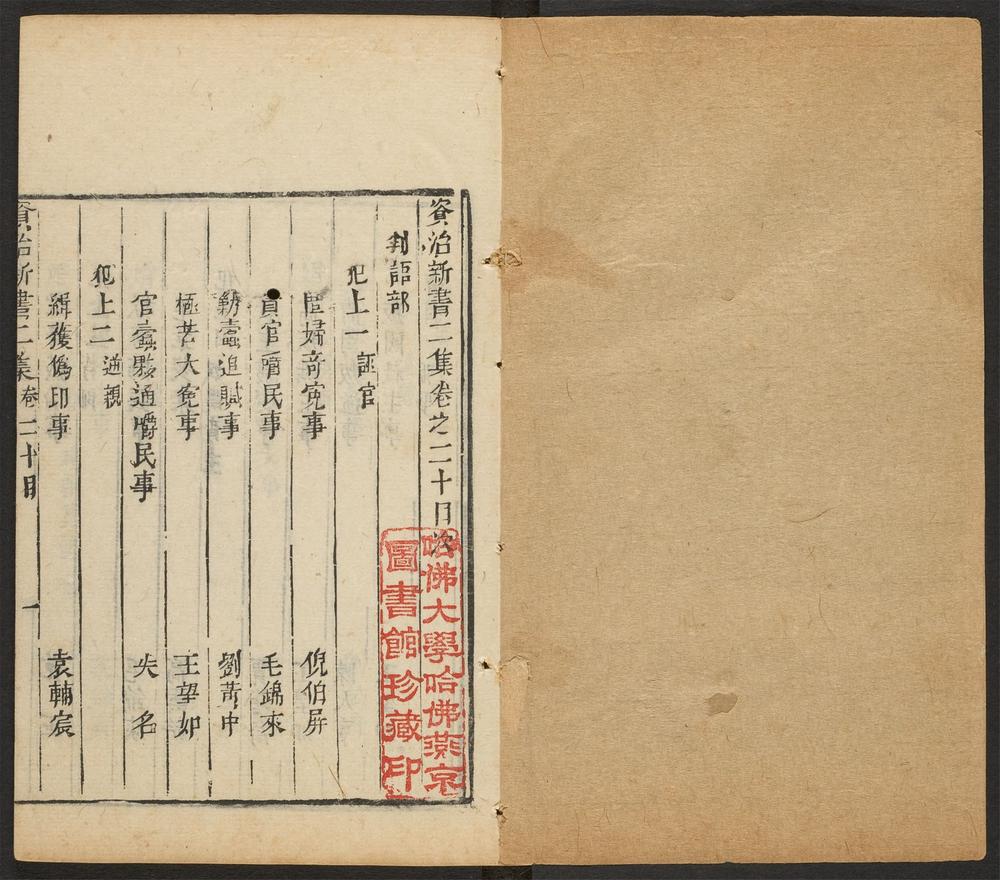 資治新書二集卷之二十目次
判語部
犯上一 誣官
官民事
劈蠹追贓事
極苦大冤事
官蠹縣通嚼民事
犯上二 逆親
緝獲偽印事
倪伯屏
毛錦來
劉黃中
王望如
失名
袁輔宸
資治新書二集 卷二十目 一
哈佛大學哈佛燕京
圖書館珍藏印